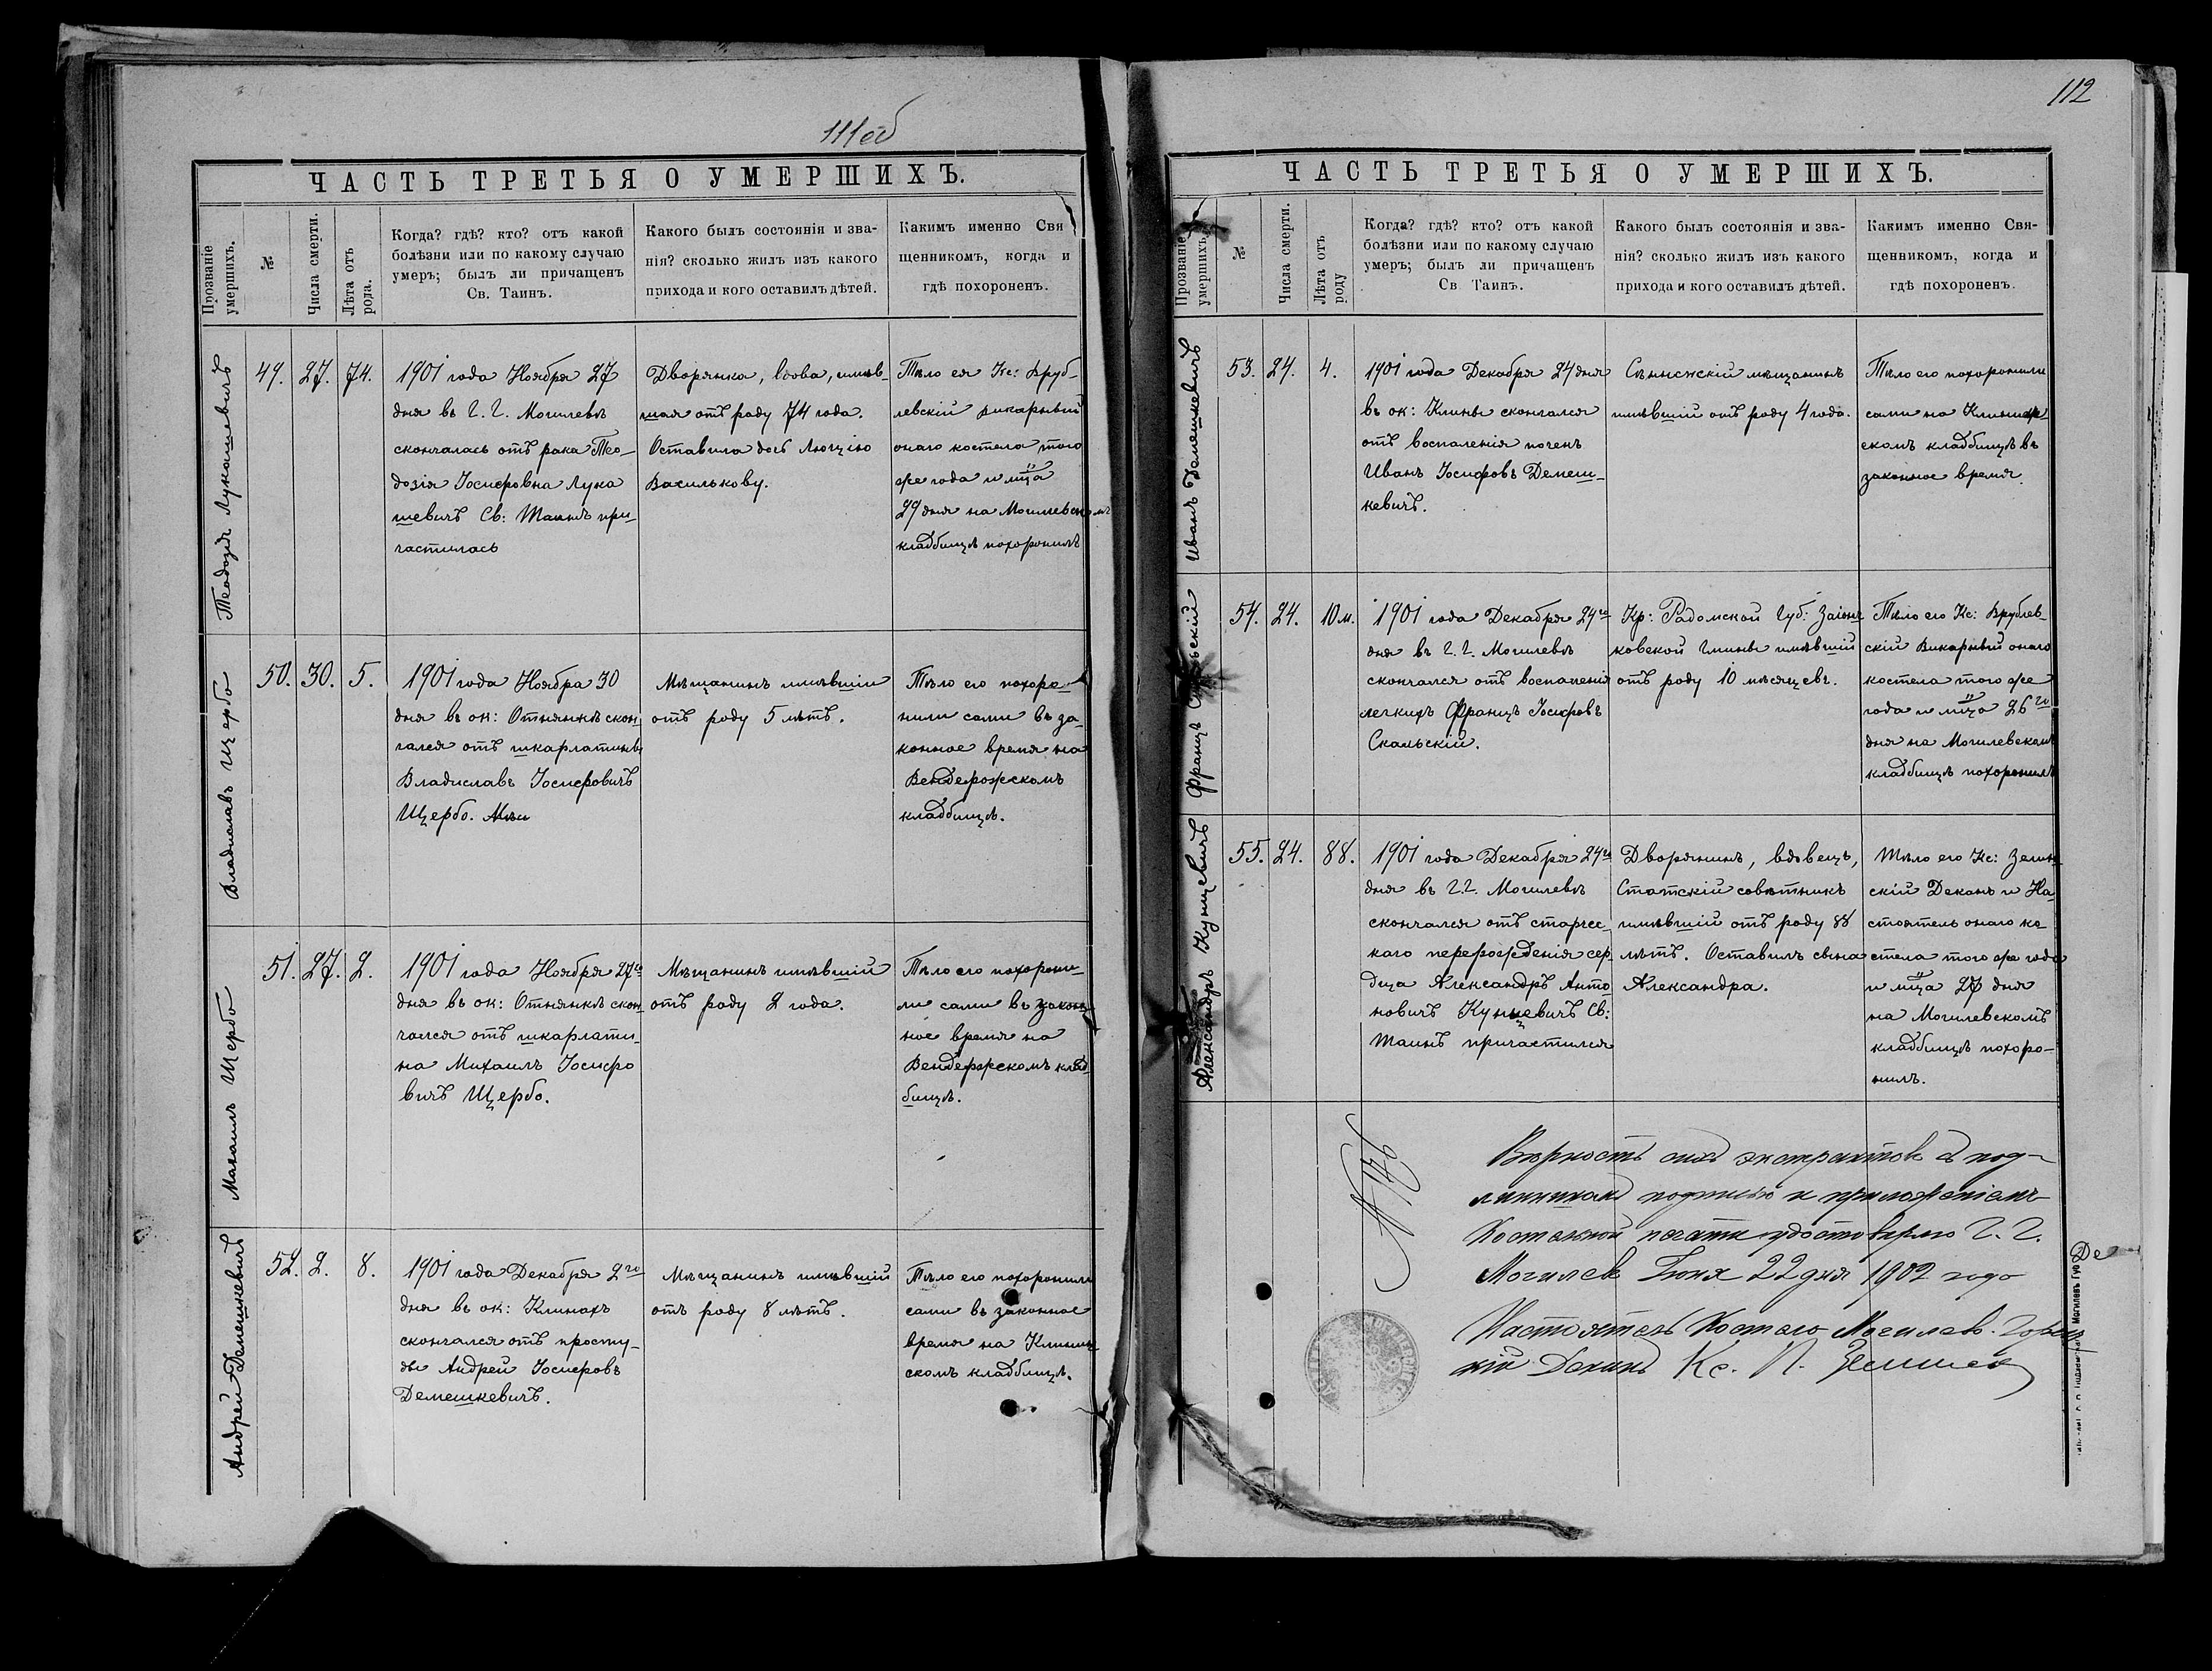 111об
ЧАСТЬ ТРЕТЬЯ О УМЕРШИХЪ.
Прозваніе
умершихъ.
№
Числа смерти.
Лѣта отъ
рода.
Когда? гдѣ? кто? отъ какой
болѣзни или по какому случаю
умеръ; былъ ли причащенъ
Св. Таинъ.
Какого былъ состоянія и зва-
нія? сколько жилъ изъ какого
прихода и кого оставилъ дѣтей.
Каимъ именно Свя
щенникомъ, когда и
гдѣ похороненъ.
Теодозія Лукашевичъ
49.
27.
74.
1901 года Ноября 27
дня въ г. г. Могилевѣ
скончалась отъ рака Тео-
дозія Іосифовна Лука
шевичъ Св: Таинъ при-
частилась
Дворянка, вдова, имѣв-
шая отъ роду 74 года.
Оставила дочь Люцію
Василькову.
Тѣло ея Кс: Вруб-
левскій викарный
онаго костела того
же года и мца
29 дня на Могилевскомъ
кладбищѣ похоронилъ
Владиславъ Щербо
50.
30.
5.
1901 года Ноября 30
дня въ ок: Отнянкѣ скон
чался отъ шкарлатины
Владиславъ Іосифовичъ
Щербо.
Мѣщанинъ имѣвшій
отъ роду 5 лѣтъ.
Тѣло его похоро-
нили сами въ за-
конное время на
Вендерожскомъ
кладбищѣ.
Михаилъ Щербо
51.
27.
2.
1901 года Ноября 27го
дня въ ок: Отнянкѣ скон-
чался отъ шкарлати-
на Михаилъ Іосифо
вичъ Щербо.
Мѣщанинъ имѣвшій
отъ роду 2 года.
Тѣло его похорони-
ли сами въ закон-
ное время на
Вендержскомъ клад-
бищѣ.
Андрей Демешкевичъ
52.
2.
8.
1901 года Декабря 2го
дня въ ок: Клинахъ
скончался отъ просту-
ды Андрей Іосифовъ
Демешкевичъ.
Мѣщанинъ имѣвшій
отъ роду 8 лѣтъ.
Тѣло его похоронили
сами въ законное
время на Клинин-
скомъ кладбищѣ.
112
ЧАСТЬ ТРЕТЬЯ О УМЕРШИХЪ.
Прозваніе
умершихъ.
№
Числа смерти.
Лѣта отъ
роду
Когда? гдѣ? кто? отъ какой
болѣзни или по какому случаю
умеръ; былъ ли причащенъ
Св Таинъ.
Какого былъ состоянія и зва-
нія? сколько жилъ изъ какого
прихода и кого оставилъ дѣтей.
Какимъ именно Свя-
щенникомъ, когда и
гдѣ похороненъ.
Иванъ Демешкевичъ
53.
24.
4.
1901 года Декабря 24 дня
въ ок: Клины скончался
отъ воспаленія почекъ
Иванъ Іосифовъ Демеш-
кевичъ.
мѣщанинъ
имѣвшій отъ роду 4 года.
Тѣло его похоронили
сами на
скомъ кладбищѣ въ
законное время.
Францъ Скальскій
54.
24.
10 м.
1901 года Декабря 24го
дня въ г. г. Могилевѣ
скончался отъ воспаленія
легкихъ Францъ Іосифовъ
Скальскій.
Кр: Радомской Губ:
ковской гмины имѣвшій
отъ роду 10 мѣсяцевъ.
Тѣло его Кс: Врублев-
скій Викарный онаго
костела того же
года и мца 26го
дня на Могилевскомъ
кладбищѣ похоронилъ
Александръ Кунцевичъ
55.
24.
88.
1901 года Декабря 24го
дня въ г. г. Могилевѣ
скончался отъ старчес-
каго перерожденія сер-
дца Александръ Анто
новичъ Кунцевичъ Св:
Таинъ причастился
Дворянинъ, вдовецъ,
Статскій совѣтникъ
имѣвшій отъ роду 88
лѣтъ. Оставилъ сына
Александра.
Тѣло его Кс:
скій Деканъ и На-
стоятель онаго ко
стела того же года
и мца 27 дня
на Могилевскомъ
кладбищѣ похоро-
нилъ.
№ 146
Вѣрность сихъ экстрактовъ съ под-
линникомъ подписью и приложеніемъ
Костельной печати удостовѣряю г. г.
Могилев Іюня 22 дня 1902 года
Настоятель Костела Могилев.
Деканъ Кс. П.
Де